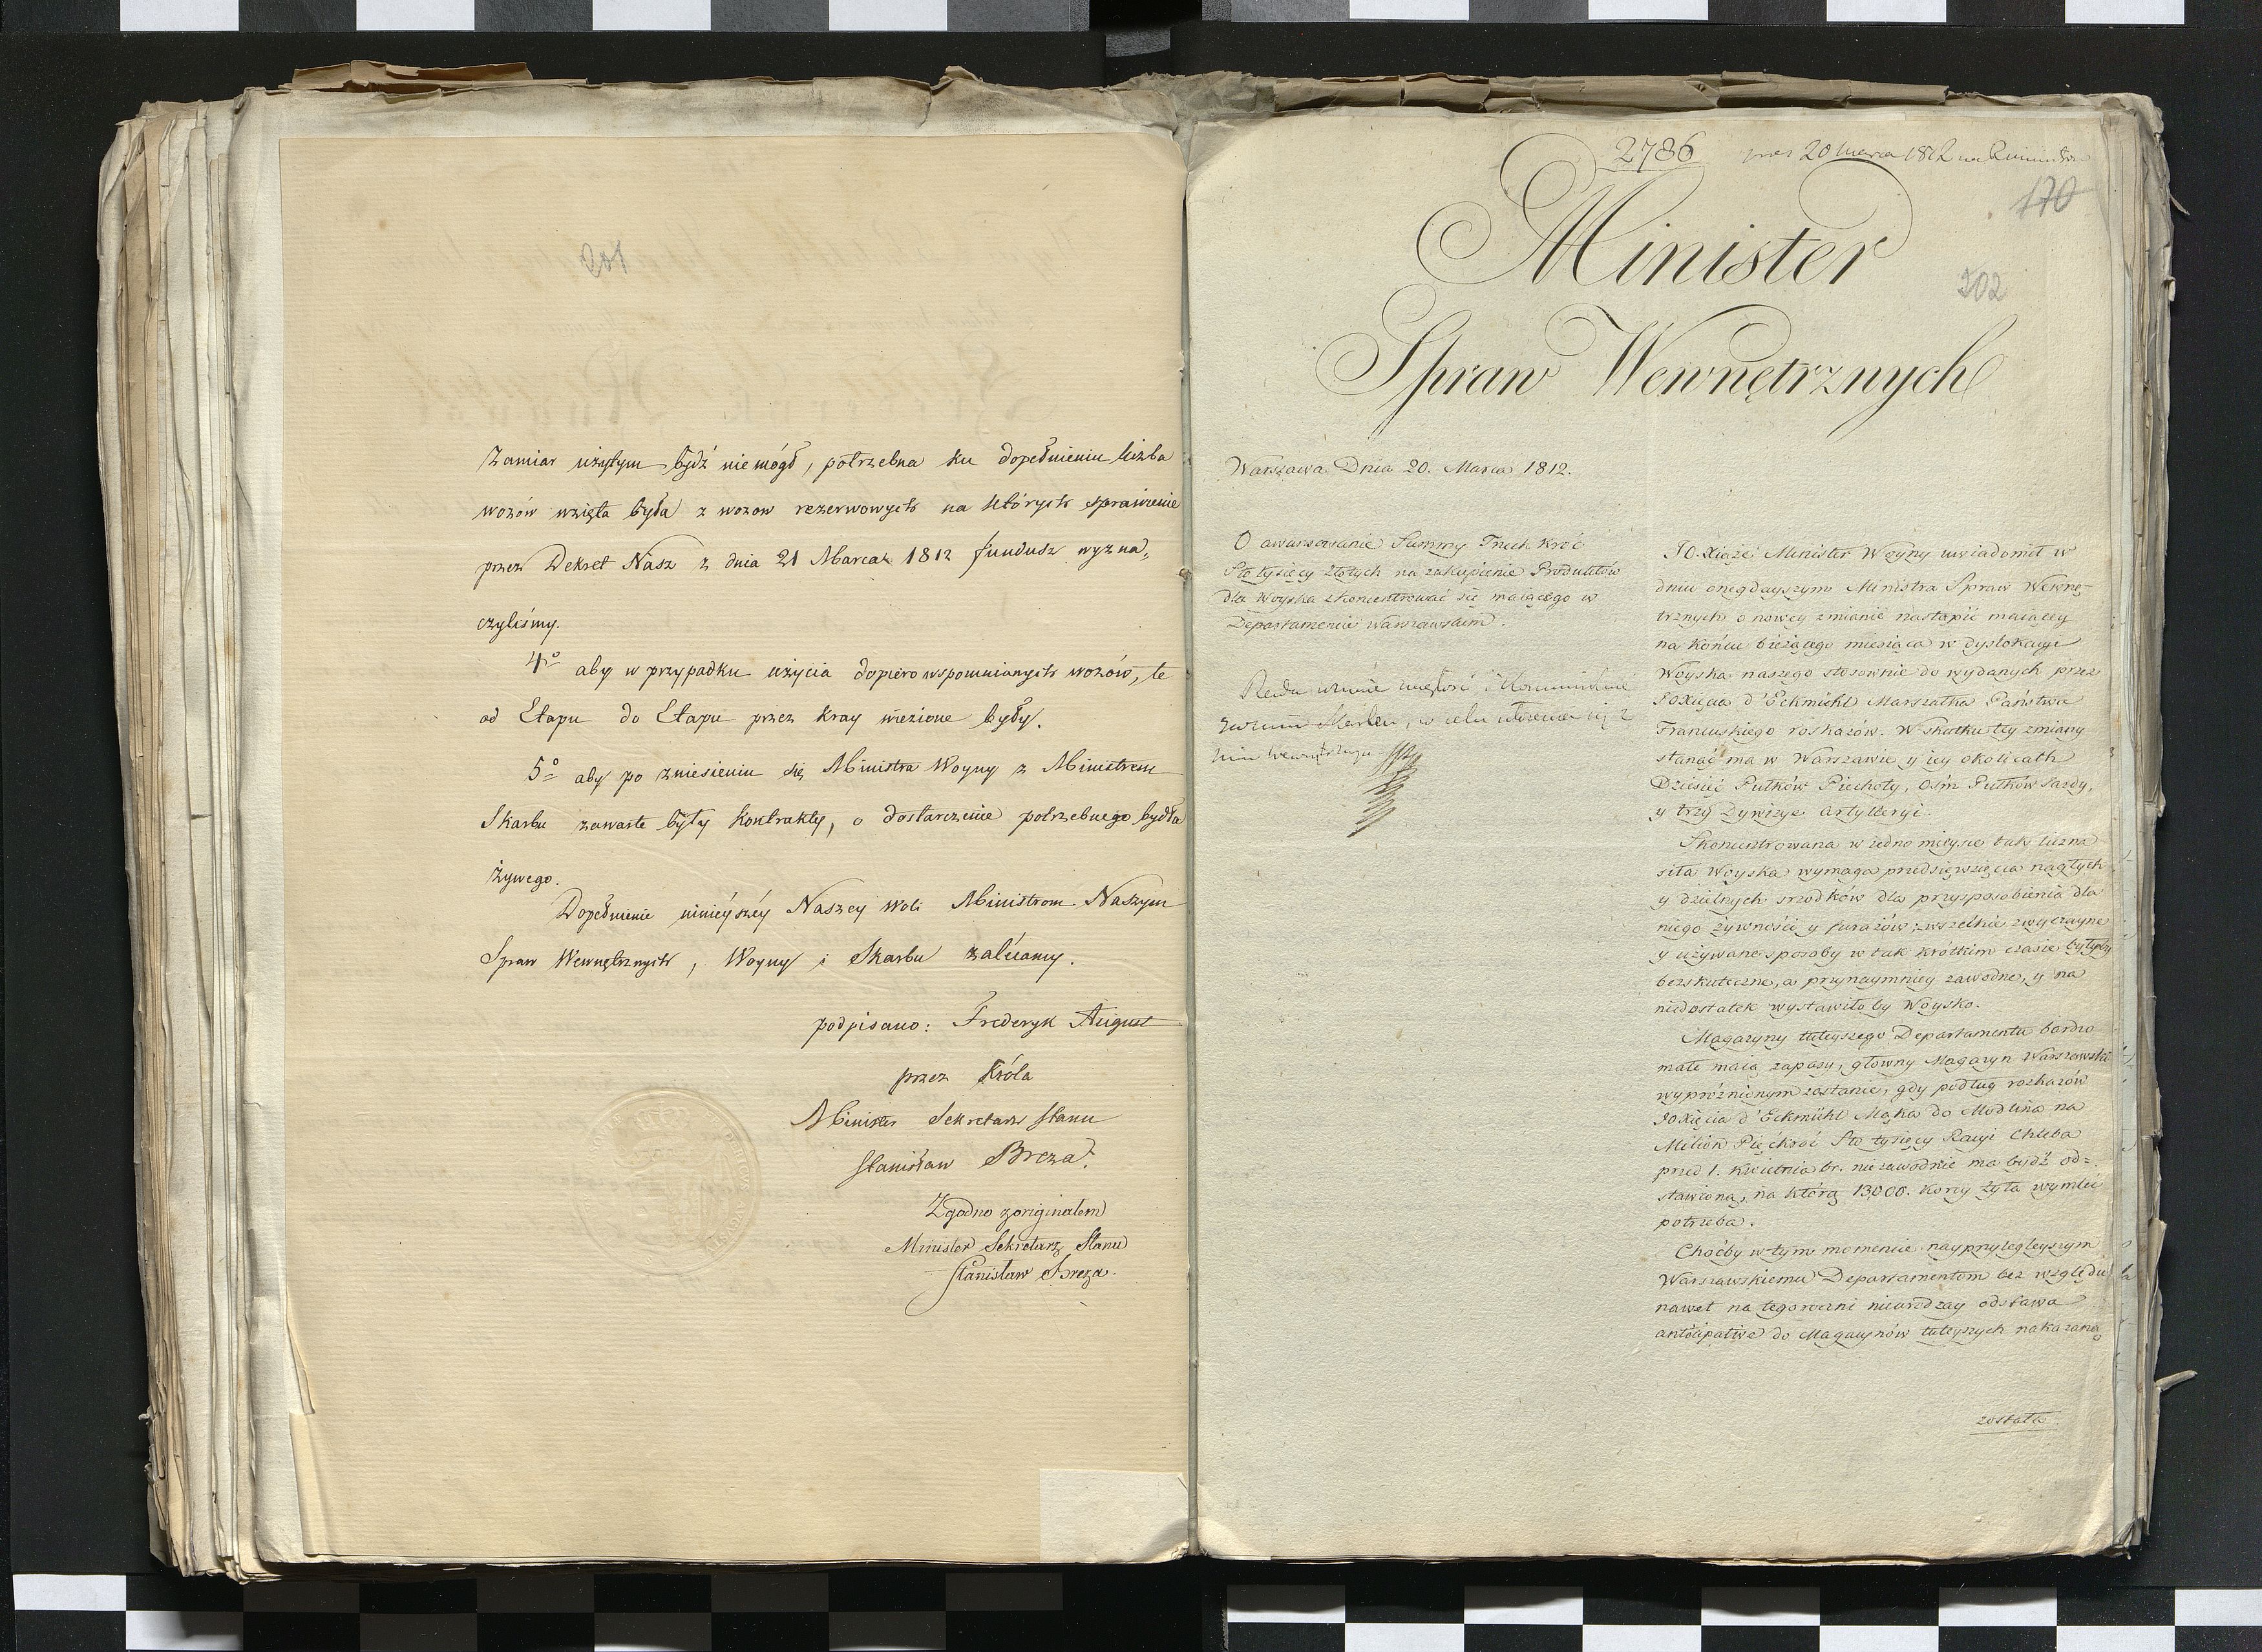 201
zamiar użytym bydź nie mógł, potrzebna ku dopełnieniu liczba
wozów wzięta była z wozow rezerwowych na których sprawienie
przez Dekret Nasz z dnia 21 Marca 1812 fundusz wyzna„
czyliśmy.
4o aby w przypadku użycia dopiero wspomnianych wozów, te
od Etapu do Etapu przez Kray wiezione były.
5o aby po zniesieniu się Ministra Woyny z Ministrem
Skarbu zawarte były Kontrakty, o dostarczenie potrzebnego bydła
żywego.
Dopełnienie ninieyszéy Naszey Woli Ministrom Naszym
Spraw Wewnętrznych, Woyny i Skarbu zalécamy.
podpisano: Frederyk August
przez Króla
Minister Sekretarz Stanu
Stanisław Breza.
Zgodno z originałem
Minister Sekretarz Stanu
Stanisław Breza.
2786 20 Marca 1812
170
Minister
202
Spraw Wewnętrznych
Warszawa Dnia 20. Marca 1812.
O awansowanie Summy Trzech Kroć
Sto tysięcy Złotych na zakupienie Produktów
dla Woyska zkoncentrować się maiącego w
Departamencie Warszawskim.
JO. Xiąże Minister Woyny uwiadomił w
dniu onegdayszym Ministra Spraw Wewnę-
trznych o nowey zmianie nastąpić maiącey
na końcu bieżącego miesiąca w dyslokacyi
Woyska naszego stosownie do wydanych przez
JO Xięcia d'Eckmühl Marszałka Państwa
Francuskiego roskazów. W skutku tey zmiany
stanąć ma w Warszawie y iey okolicach
Dziesięć Pułków Piechoty, Ośm Pułków Jazdy,
y trzy Dywizye Artylleryi.
Skoncentrowana w iedno mieysce tak liczna
siła Woyska wymaga przedsięwzięcia nagłych
y dzielnych srzodków dla przysposobienia dla
niego żywności y furażów; wszelkie zwyczayne
y używane sposoby w tak krótkim czasie byłyby
bezskuteczne, a przynaymniey zawodne, y na
niedostatek wystawiłoby Woysko.
Magazyny tuteyszego Departamentu bardzo
małe maią zapasy, główny Magazyn Warszawski
wypróżnionym zostanie, gdy podług rozkazów
JO Xięcia d'Eckmühl Mąka do Modlina na
Milion Pięćkroć Sto tysięcy Racyi Chleba
przed 1. Kwietnia br. niezawodnie ma bydź od=
stawioną, na którą 13,000. Korcy żyta wymleć
potrzeba.
Choćby w tym momencie nayprzyległeyszym
Warszawskiemu Departamentom bez względu
nawet na tegoroczni nieurodzay odstawa
anticipative do Magazynów tuteyszych nakazana
została